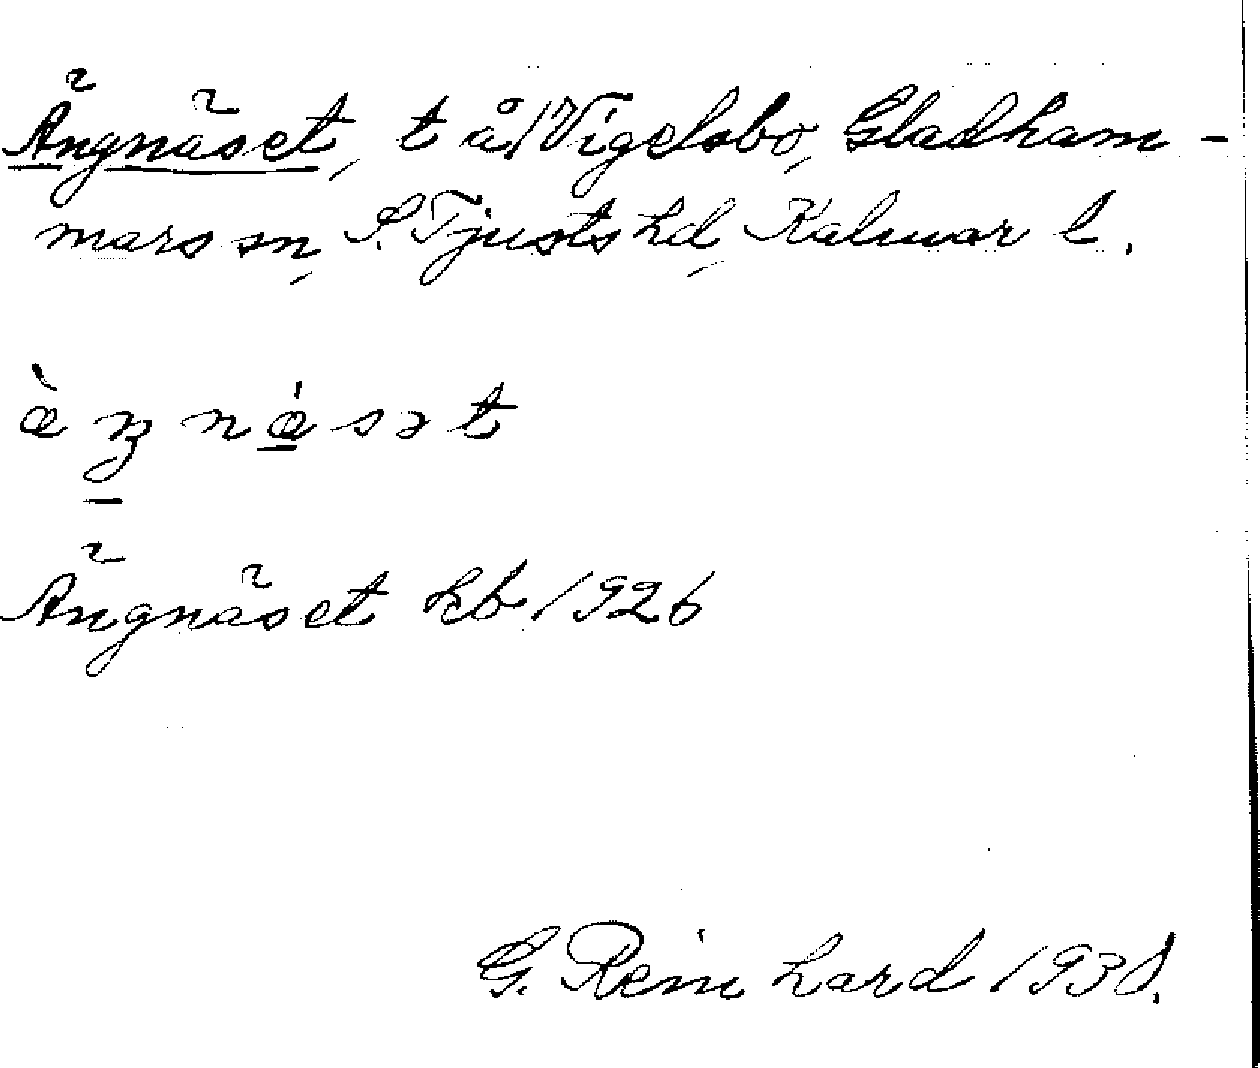 Ängnäset, t å Vigelsbo, Gladham-
mars sn, S. Tjusts hd, Kalmar l.
Ängnäset kb 1926
G. Reinhard